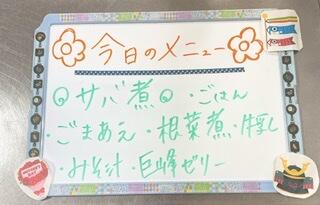 今日のメニュー
◎サバ煮◎・ごはん
・ごまあえ・根菜煮・牛乳
・みそ汁・巨峰ゼリー